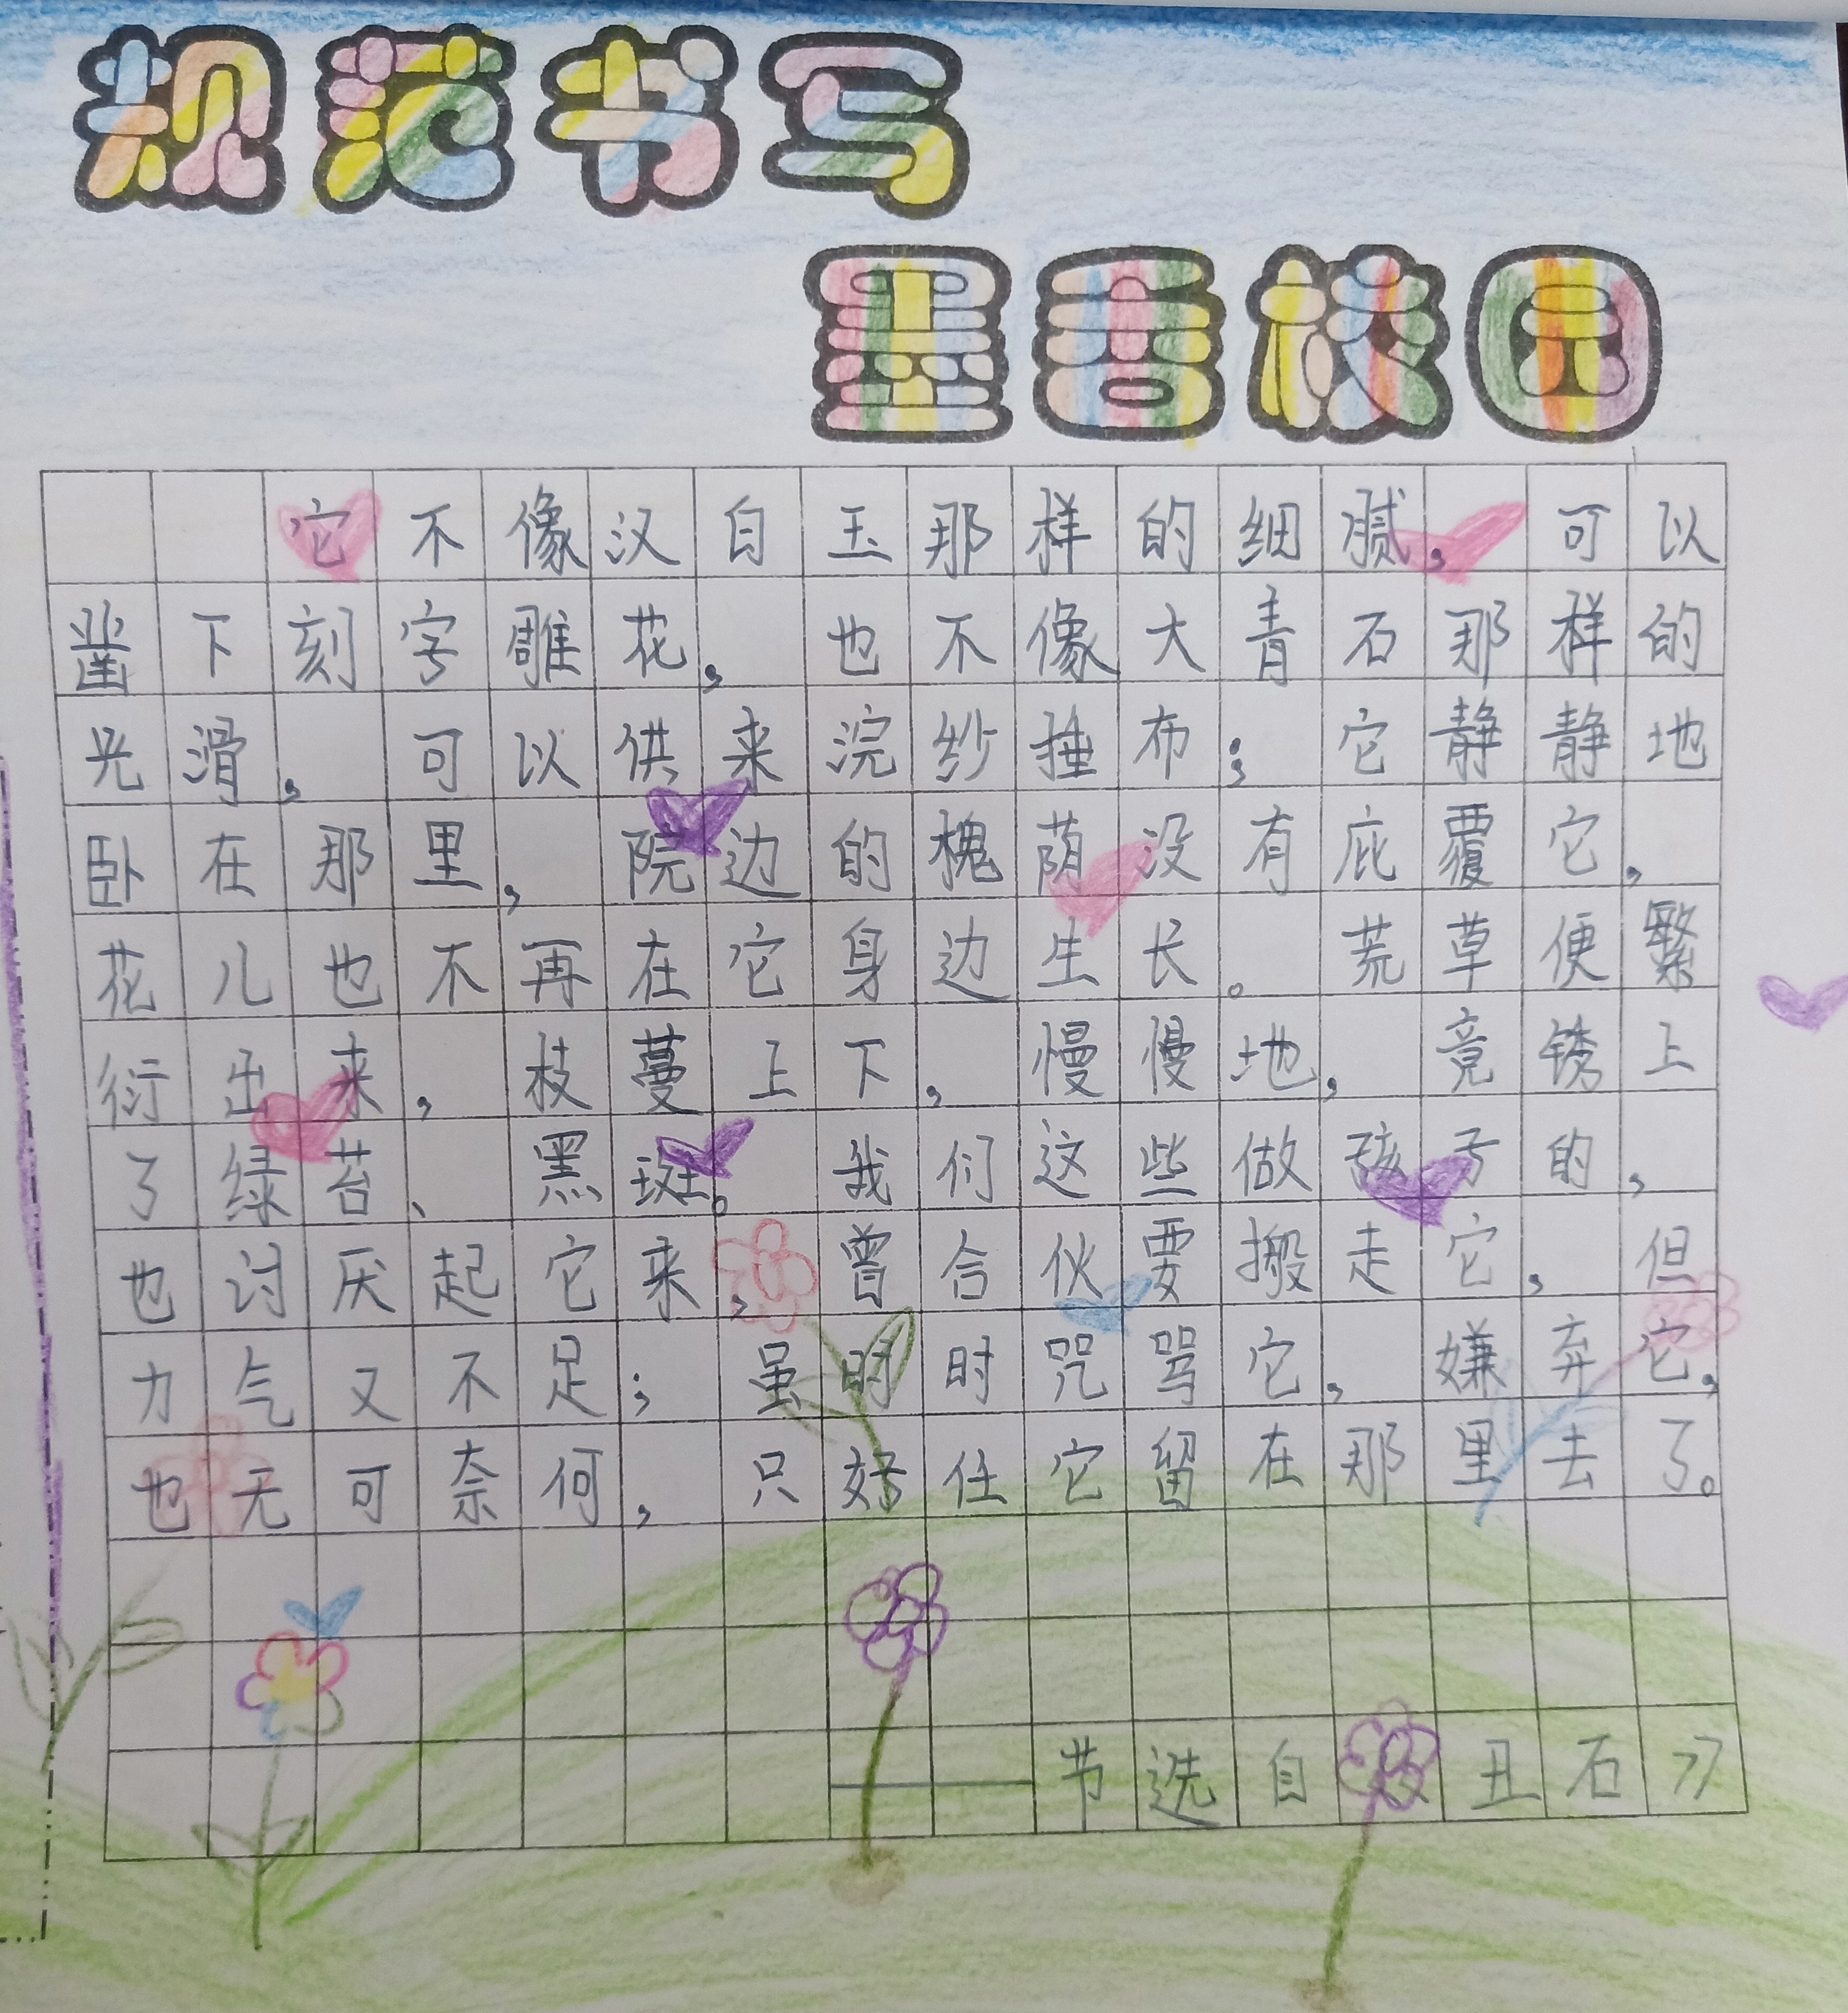 规范书写
墨香校园
它不像汉白玉那样的细腻，可以
凿下刻字雕花，也不像大青石那样的
光滑，可以供来浣纱捶布；它静静地
卧在那里，院边的槐荫没有庇覆它，
花儿也不再在它身边生长。荒草便繁
衍出来，枝蔓上下，慢慢地，竟锈上
了绿苔、黑斑。我们这些做孩子的，
也讨厌起它来，曾合伙要搬走它，但
力气又不足；虽时时咒骂它，嫌弃它，
也无可奈何，只好任它留在那里去了。
——节选自《丑石》